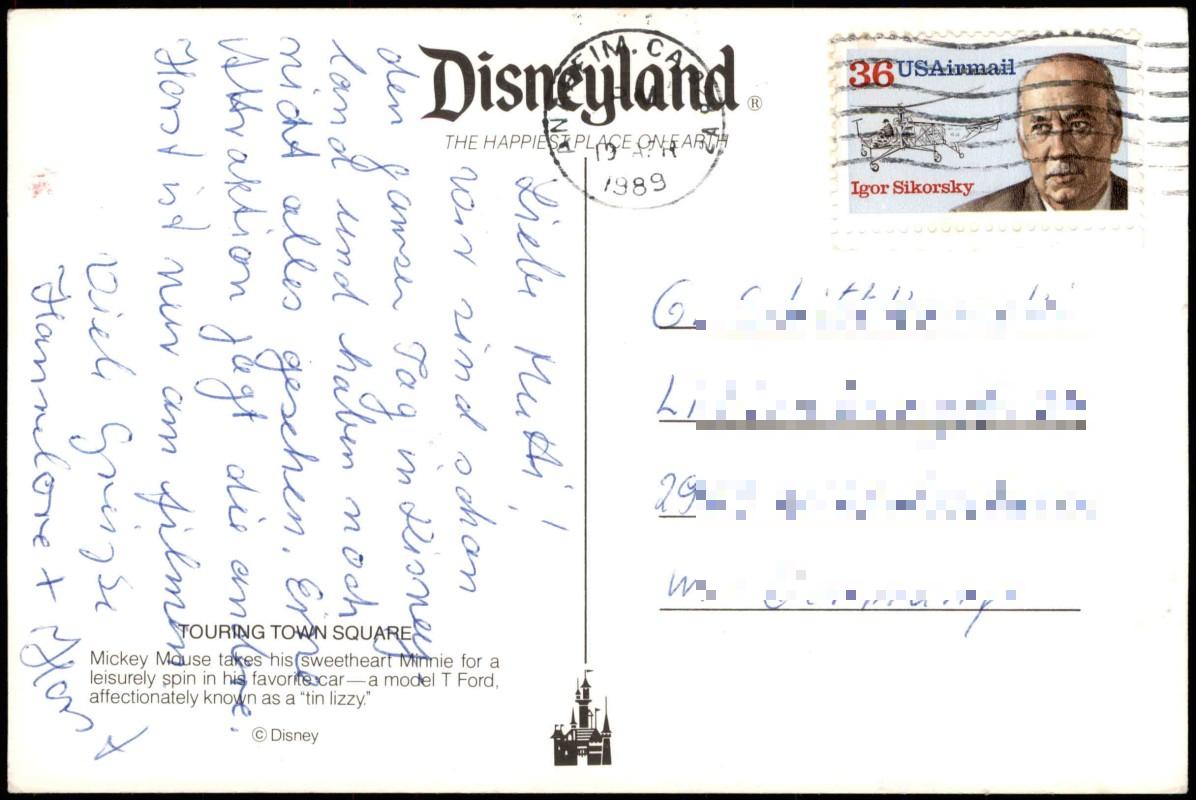 Disneyland®
THE HAPPIEST PLACE ON EARTH
ANAHEIM, CA
PM
19 APR
1989
36 USAirmail
Igor Sikorsky
Liebe Mutti!
wir sind schon
den ganzen Tag in Disney-
land und haben noch
nicht alles gesehen. Eine
Attraktion jagt die andere.
Horst ist nur am filmen
Viele Grüße
Hannelore + Horst
G.
L
29
W. Germany
TOURING TOWN SQUARE
Mickey Mouse takes his sweetheart Minnie for a
leisurely spin in his favorite car—a model T Ford,
affectionately known as a "tin lizzy."
© Disney